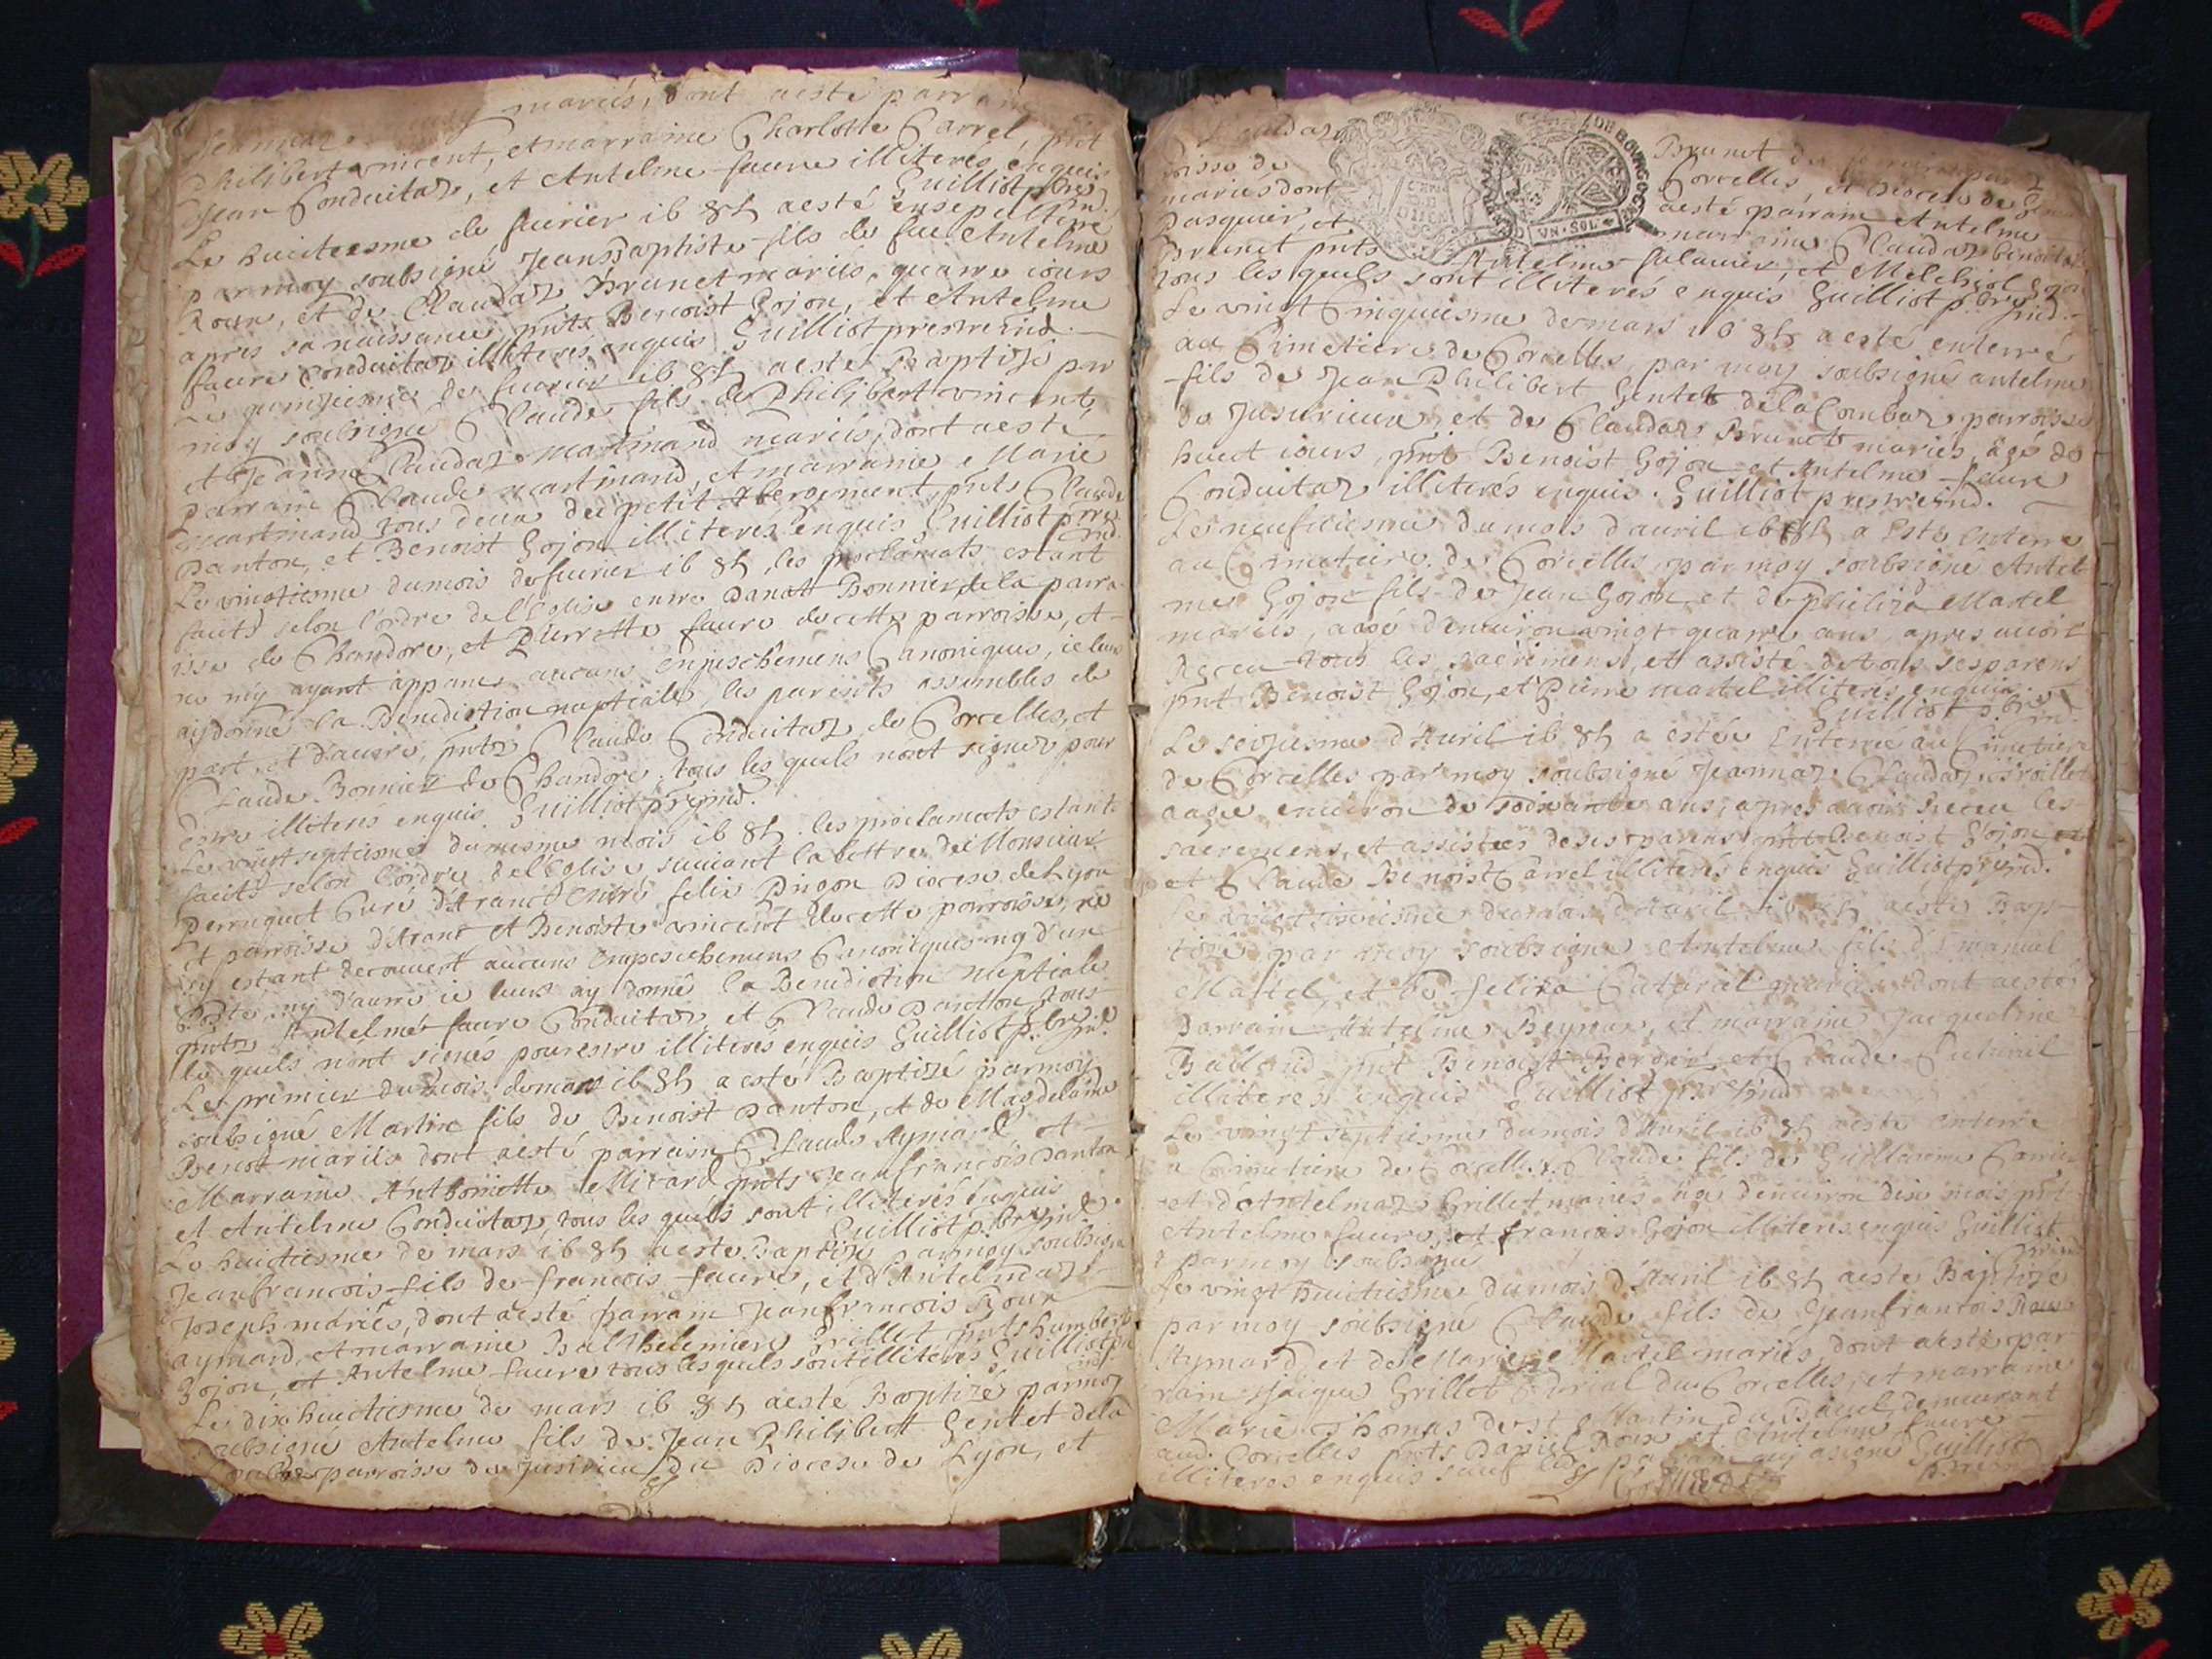 mariés, dont aesté parrain
Philibert vincent, et marraine Charlotte Carrel, pnt
Jean Conduitaz, et Antelme faure illiterés enquis
Guilliot pbre
Le huictiesme de feurier 1684 aesté ensepulturé
par moy soubsigné Jean Baptiste fils de feu Antelme
Roux, et de Claudaz Brunet mariés, quatre iours
apres sa naissance pnts Benoist Gojon, et Antelme
faure Conduitaz illiterés enquis Guilliot prestre ind.
Le quinziesme de feurier 1684 aesté Baptisé par
moy soubsigné Claude fils de Philibert vincent,
et Jeanne Claudaz martinand mariés, dont aesté
parrain Claude martinand, et marraine Marie
martinand tous deux du petit Abergement, pnts Claude
Danton, et Benoist Gojon illiterés enquis Guilliot prre
ind.
Le vingtiesme du mois de feurier 1684, les proclamats estant
faits selon l'ordre de l'Eglise entre Danoit Bonnier de la parro
isse de Chandore, et Pierrette faure de cette parroisse, et
ne m'y ayant apparu aucuns enpeschemens Canoniques, ie leur
ay donné la Benediction nuptiale, les parents assembles de
part, et d'autre, pnts Claude Conduitaz de Corcelles, et
Claude Bonnier de Chandore, tous lesquels n'ont signer pour
estre illiterés enquis Guilliot pre ind.
Le vingt septiesme du mesme mois 1684 les proclamats estant
faits selon l'ordre de l'Eglise, suiuant la lettre de Monsieur
Perruquet Curé d'Aranc entre felix Pingon Diocese de Lyon
et parroisse d'Aranc et Benoiste vincent de cette parroisse, ne
m'y estant decouuert aucuns empeschemens Canoniques ny d'un
costé, ny d'autre ie leurs ay donné la Benediction Nuptiale
pnts Antelme faure Conduitaz, et Claude Danthon tous
lesquels n'ont signés pour estre illiterés enquis Guilliot pbre ind.
Le premier du mois de mars 1684 a esté Baptizé par moy
soubsigné Martin fils de Benoist Danton, et de Magdelaine
Benoit mariés dont aesté parrain Claude Aymard, et
Marraine Anthoinette Miard pnts Jean françois Danton
et Antelme Conduitaz, tous lesquels sont illiterés enquis
Guilliot pbre ind.
Le huictiesme de mars 1684 aesté Baptizé par moy soubsigné
Jean françois fils de françois faure, et d'Antelmaz
Joseph mariés, dont aesté parrain Jean françois Roux
aymard, et marraine Balthelemiere Grillet pnts humbert
Gojon, et Antelme faure tous lesquels sont illiterés Guilliot
ind.
Le dix huictiesme de mars 1684 aesté Baptizé par moy
soubsigné Antelme fils de Jean Philibert Gentet de la
Combaz parroisse de Jusurieu du Diocese de Lyon, et
Claudaz
Brunet
roisse de
Corcelles, et Diocese de
mariés dont
aesté parrain Antelme
Pasquier, et
marraine Claudaz
Brunet pnts
Antelme Salauier, et Melchiol Gojon
tous les quels sont illiterés enquis Guilliot pbre ind.
Le vingt Cinquiesme de mars 1684 aesté enterré
au Cimetiere de Corcelles, par moy soubsigné antelme
fils de Jean Philibert Gentet de la Combaz, parroisse
de Jusurieux, et de Claudaz Brunet mariés, agé de
huict iours, pnt Benoist Gojon et Antelme faure
Conduitaz illiterés enquis Guilliot prestre ind.
Le neufiesme du mois d'auril 1684 a Esté Enterré
au Cimetiere de Corcelles par moy soubsigné Antel
me Gojon fils de Jean Gojon, et de Philiza Martel
mariés, aagé d'enuiron vingt quatre ans, apres auoir
Receu tous les sacremens, et assisté de tous ses parens
pnt Benoist Gojon, et Pierre martel illiterés enquis
Guilliot pbre ind.
Le seiziesme d'Auril 1684 a estée Enterrée au Cimetiere
de Corcelles par moy soubsigné Jeannaz Claudaz
aagée enuiron de soixante ans, apres auoir Receu les
sacremens, et assistées de ses parens pnt Benoist Gojon
et Claude Benoist Carrel illiterés enquis Guilliot pre ind.
Le vingt du mois d'Auril 1684 aesté Bap
tizé par moy soubsigné Antelme fils d'Emanuel
Martel, et de feliza Cuturil mariés dont aesté
Parrain Antelme Reynax, et marraine Jacqueline
Balland pnt Benoist Berger, et Claude Cuturil
illiterés enquis Guilliot prre ind.
Le vingt septiesme du mois d'Auril 1684 aesté enterré
a Cimetiere de Corcelles Claude fils de Guillaume Carrier
et d'Antelmaz Grillet mariés, agé d'enuiron dix mois pnt
Antelme faure, et françois Gojon illiterés enquis Guilliot
par moy soubsigné
Le vingt huictiesme du mois d'Auril 1684 aesté Baptizé
par moy soubsigné Claude fils de Jean francois Roux
Aymard, et de Marie Martel mariés, dont aesté par
rain Jaique Grillet Curial de Corcelles, et marraine
Marie Thomas de st Martin du Bacel, demeurant
aud. Corcelles pnts Daniel Roux et Antelme faure
illiteres enquis sauf led. parrain qui a signé Guilliot